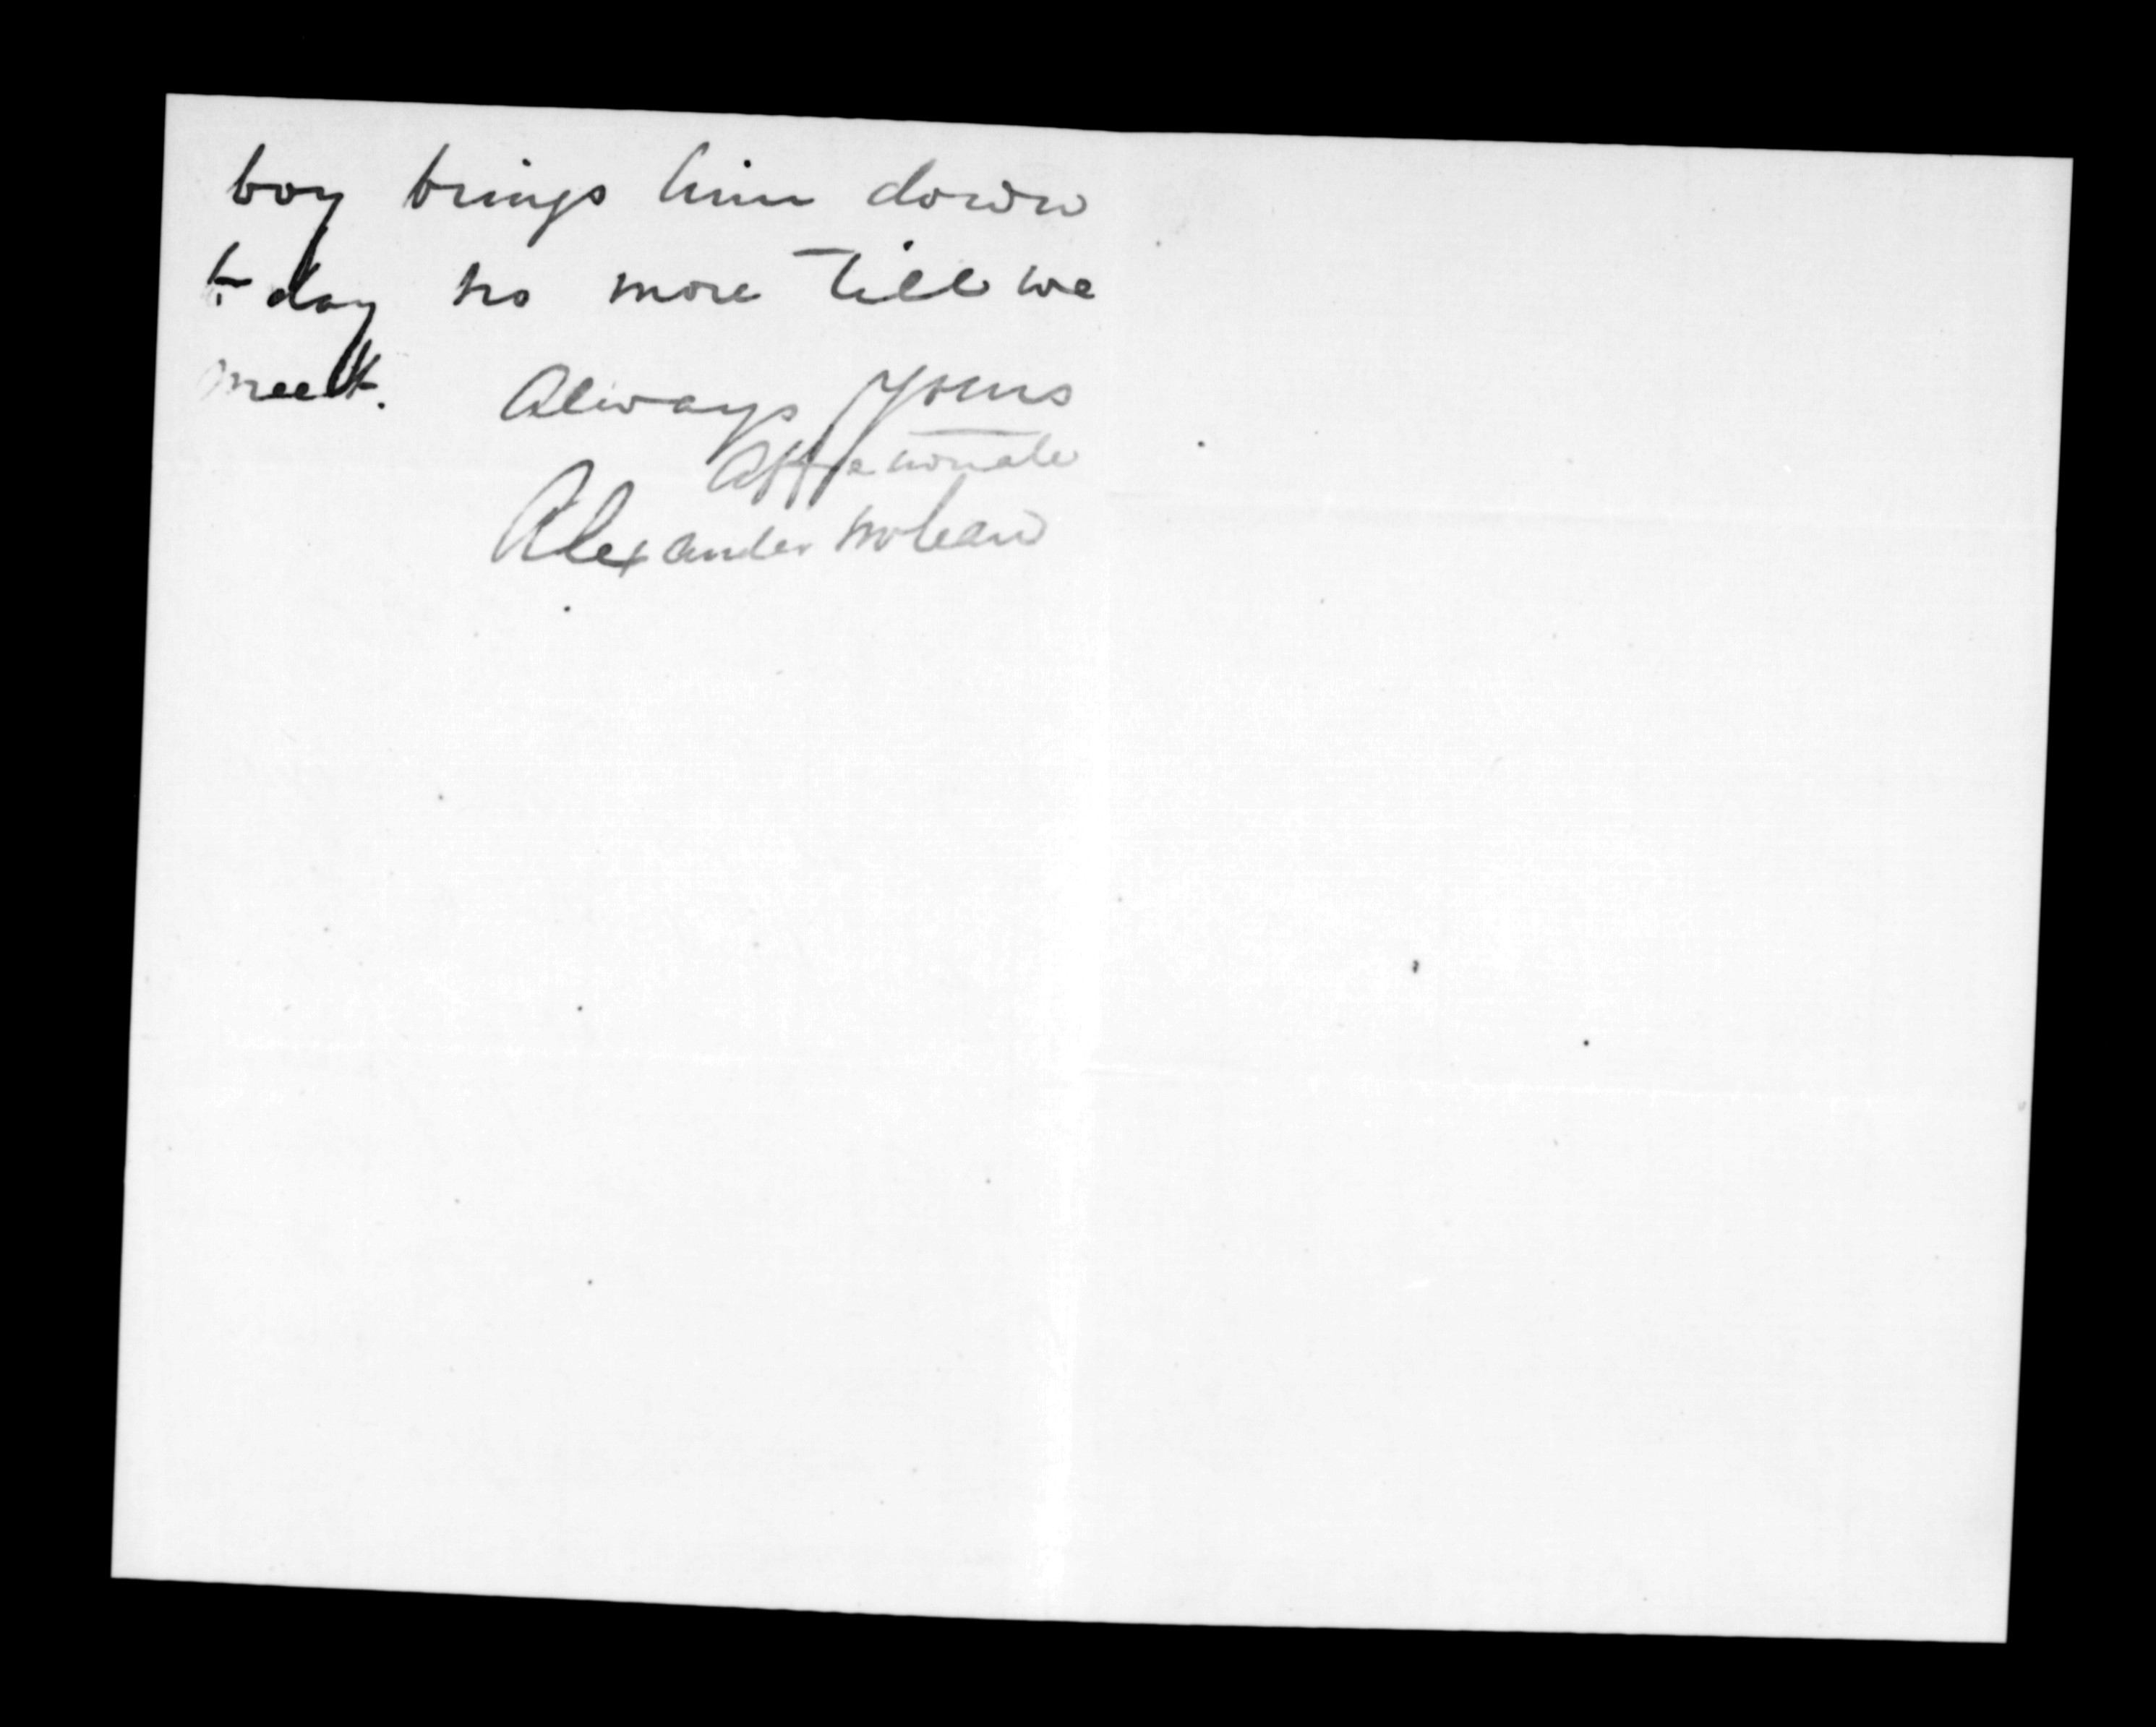 boy brings him down
to day no more till we
meet.
Always yours
affectionate
Alexander McLean